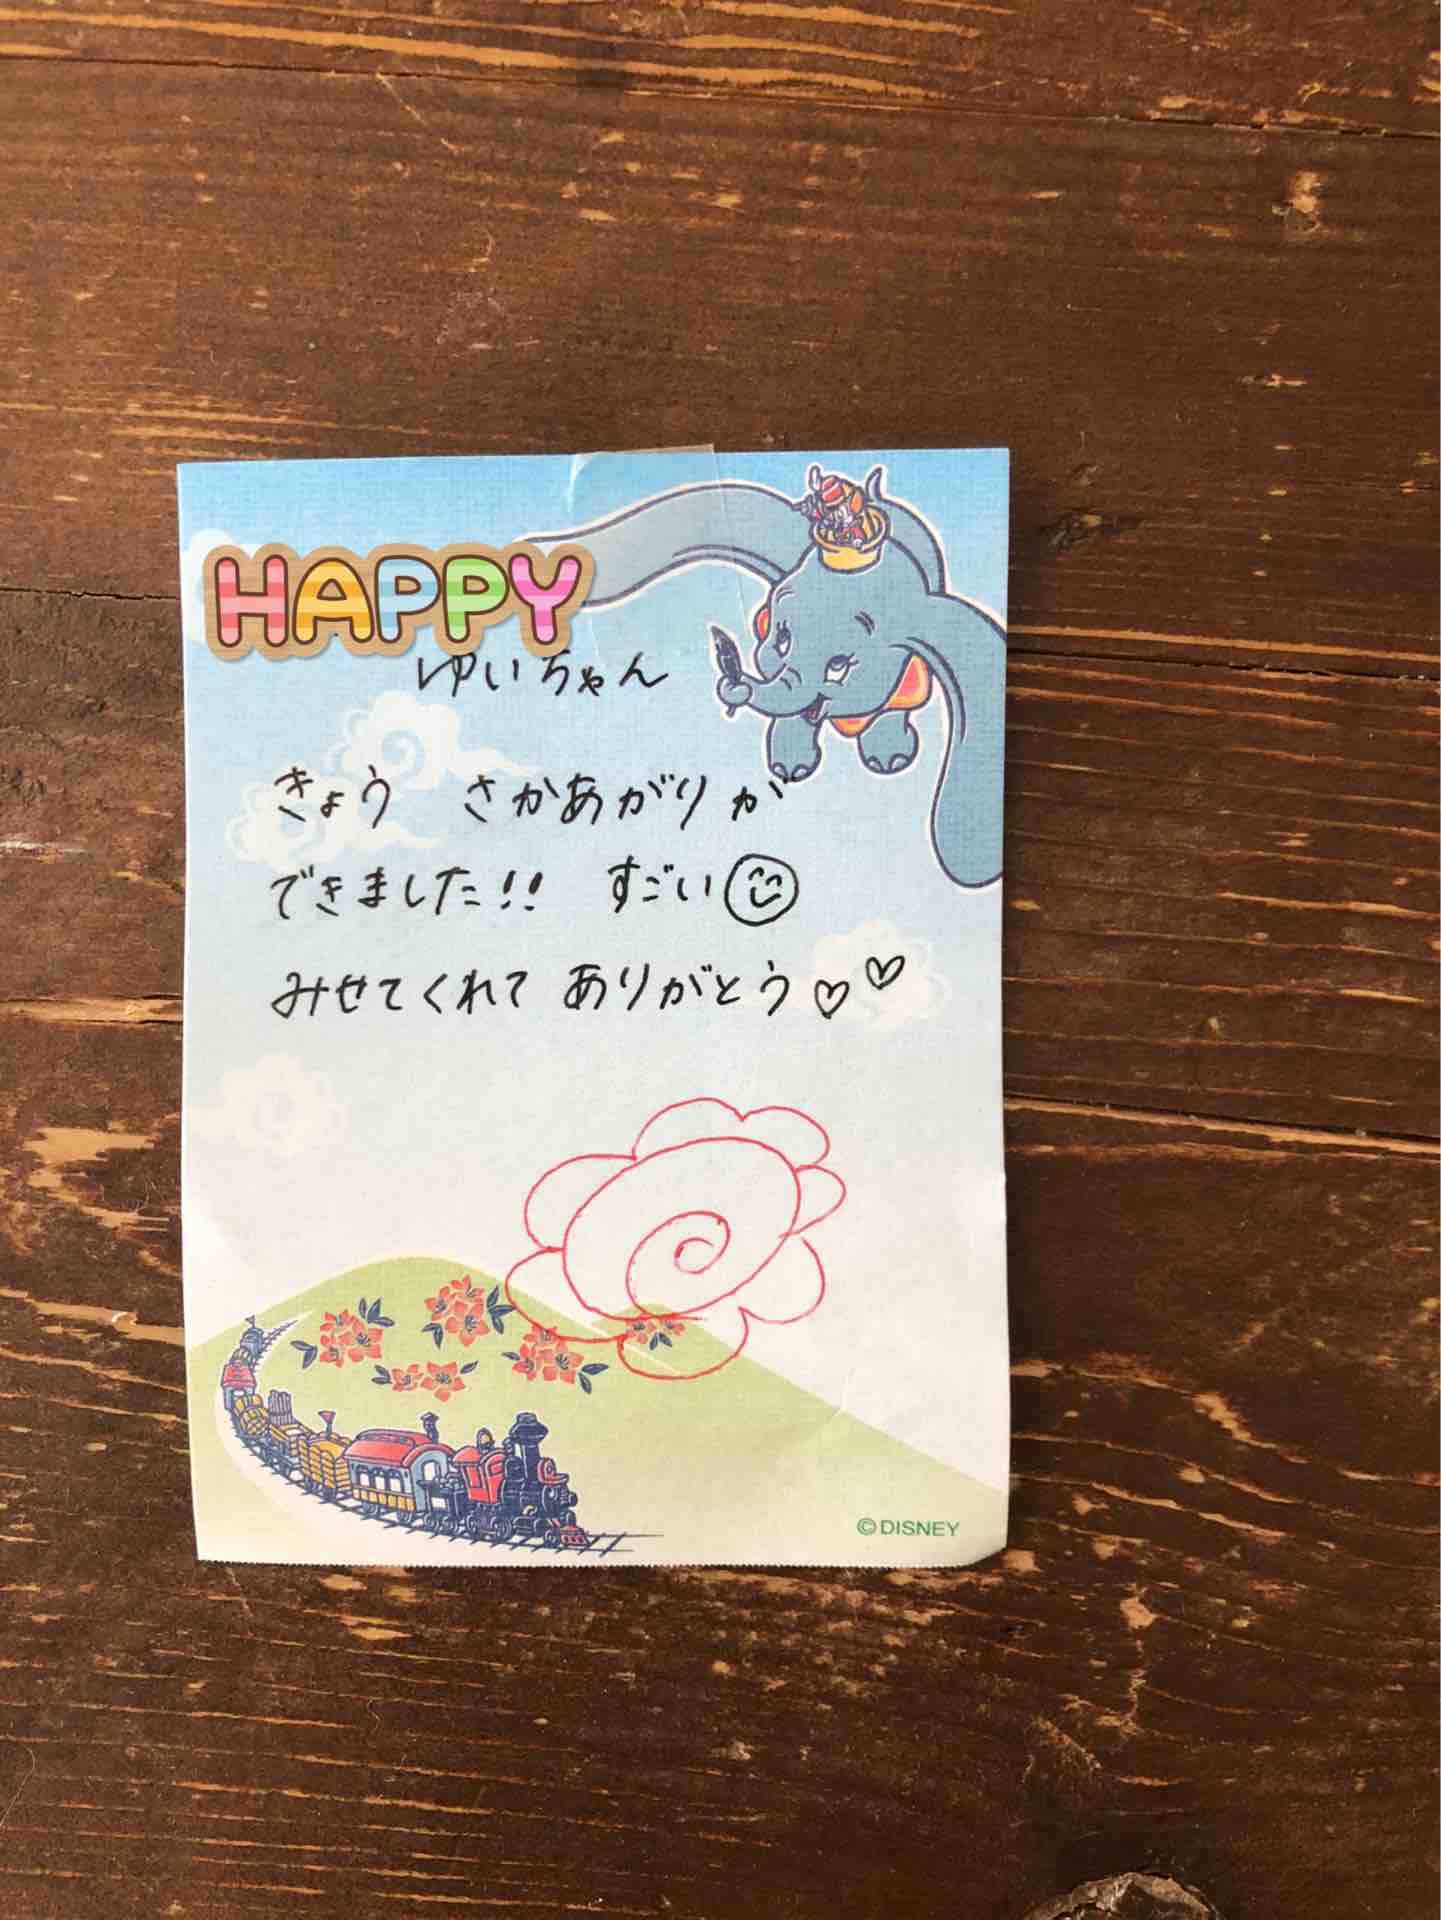 HAPPY
ゆいちゃん
きょう さかあがりが
できました!! すごい
みせてくれて ありがとう♡♡
©DISNEY